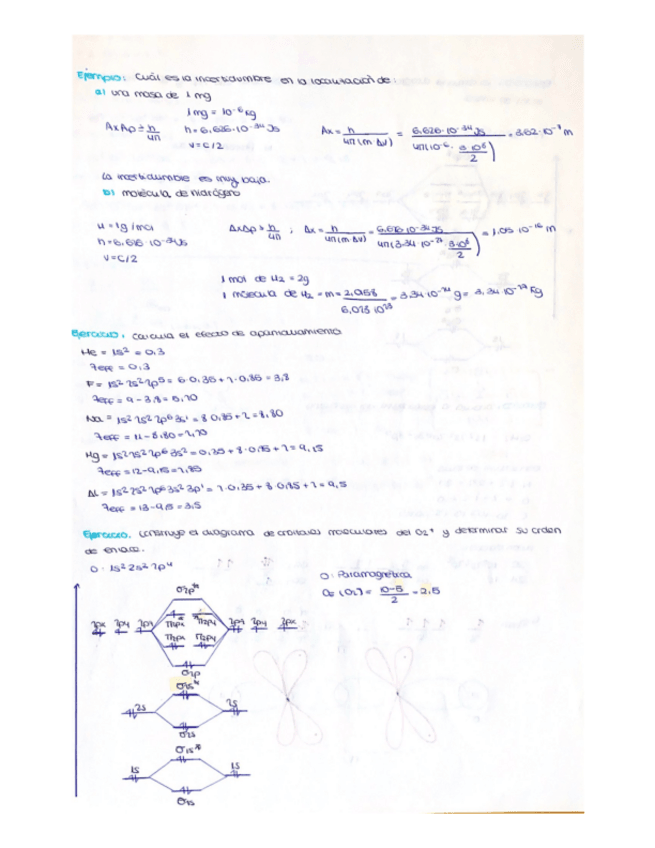 Ejemplo: Cuál es la incertidumbre en la localización de:
a) una masa de 1 mg
1mg = 10⁻⁶ Kg
ΔxΔp ≥ h/4π h = 6,626·10⁻³⁴ Js Δx = h/4π(m·Δv) = 6,626·10⁻³⁴ Js/4π(10⁻⁶· 3·10⁸/2)
v = c/2
La incertidumbre es muy baja.
b) molécula de hidrógeno
u = 1g/mol
h = 6,626·10⁻³⁴ Js
v = c/2
ΔxΔp ≥ h/4π ; Δx = h/4π(m·Δv) = 6,626·10⁻³⁴ Js/4π(3,34·10⁻²⁷· 3·10⁸/2) = 1,05·10⁻¹⁶ m
1 mol de H₂ = 2g
1 molécula de H₂ = m = 3,34·10⁻²⁴ g = 3,34·10⁻²⁷ Kg
Ejercicio: Calcula el efecto de apantallamiento
He = 1s² = 0,3
F = 1s² 2s² 2p⁵ = 6·0,35 + 2·0,85 = 3,8
Zeff = 9 - 3,8 = 5,20
Na = 1s² 2s² 2p⁶ 3s¹ = 8·0,85 + 2 = 8,80
Zeff = 11 - 8,80 = 2,20
Mg = 1s² 2s² 2p⁶ 3s² = 0,35 + 8·0,85 + 2 = 9,15
Zeff = 12 - 9,15 = 2,85
Al = 1s² 2s² 2p⁶ 3s² 3p¹ = 2·0,35 + 8·0,85 + 2 = 9,5
Zeff = 13 - 9,5 = 3,5
Ejercicio. Construye el diagrama de orbitales moleculares del O₂⁺ y determinar su orden
de enlace.
O: 1s² 2s² 2p⁴
O: Paramagnética
10-5/2 = 2,5
σ2p*
2px 2py 2pz π2px* π2py* 2pz 2py 2px
π2px π2py
σ2p
σ2s*
2s 2s
σ2s
σ1s*
1s 1s
σ1s